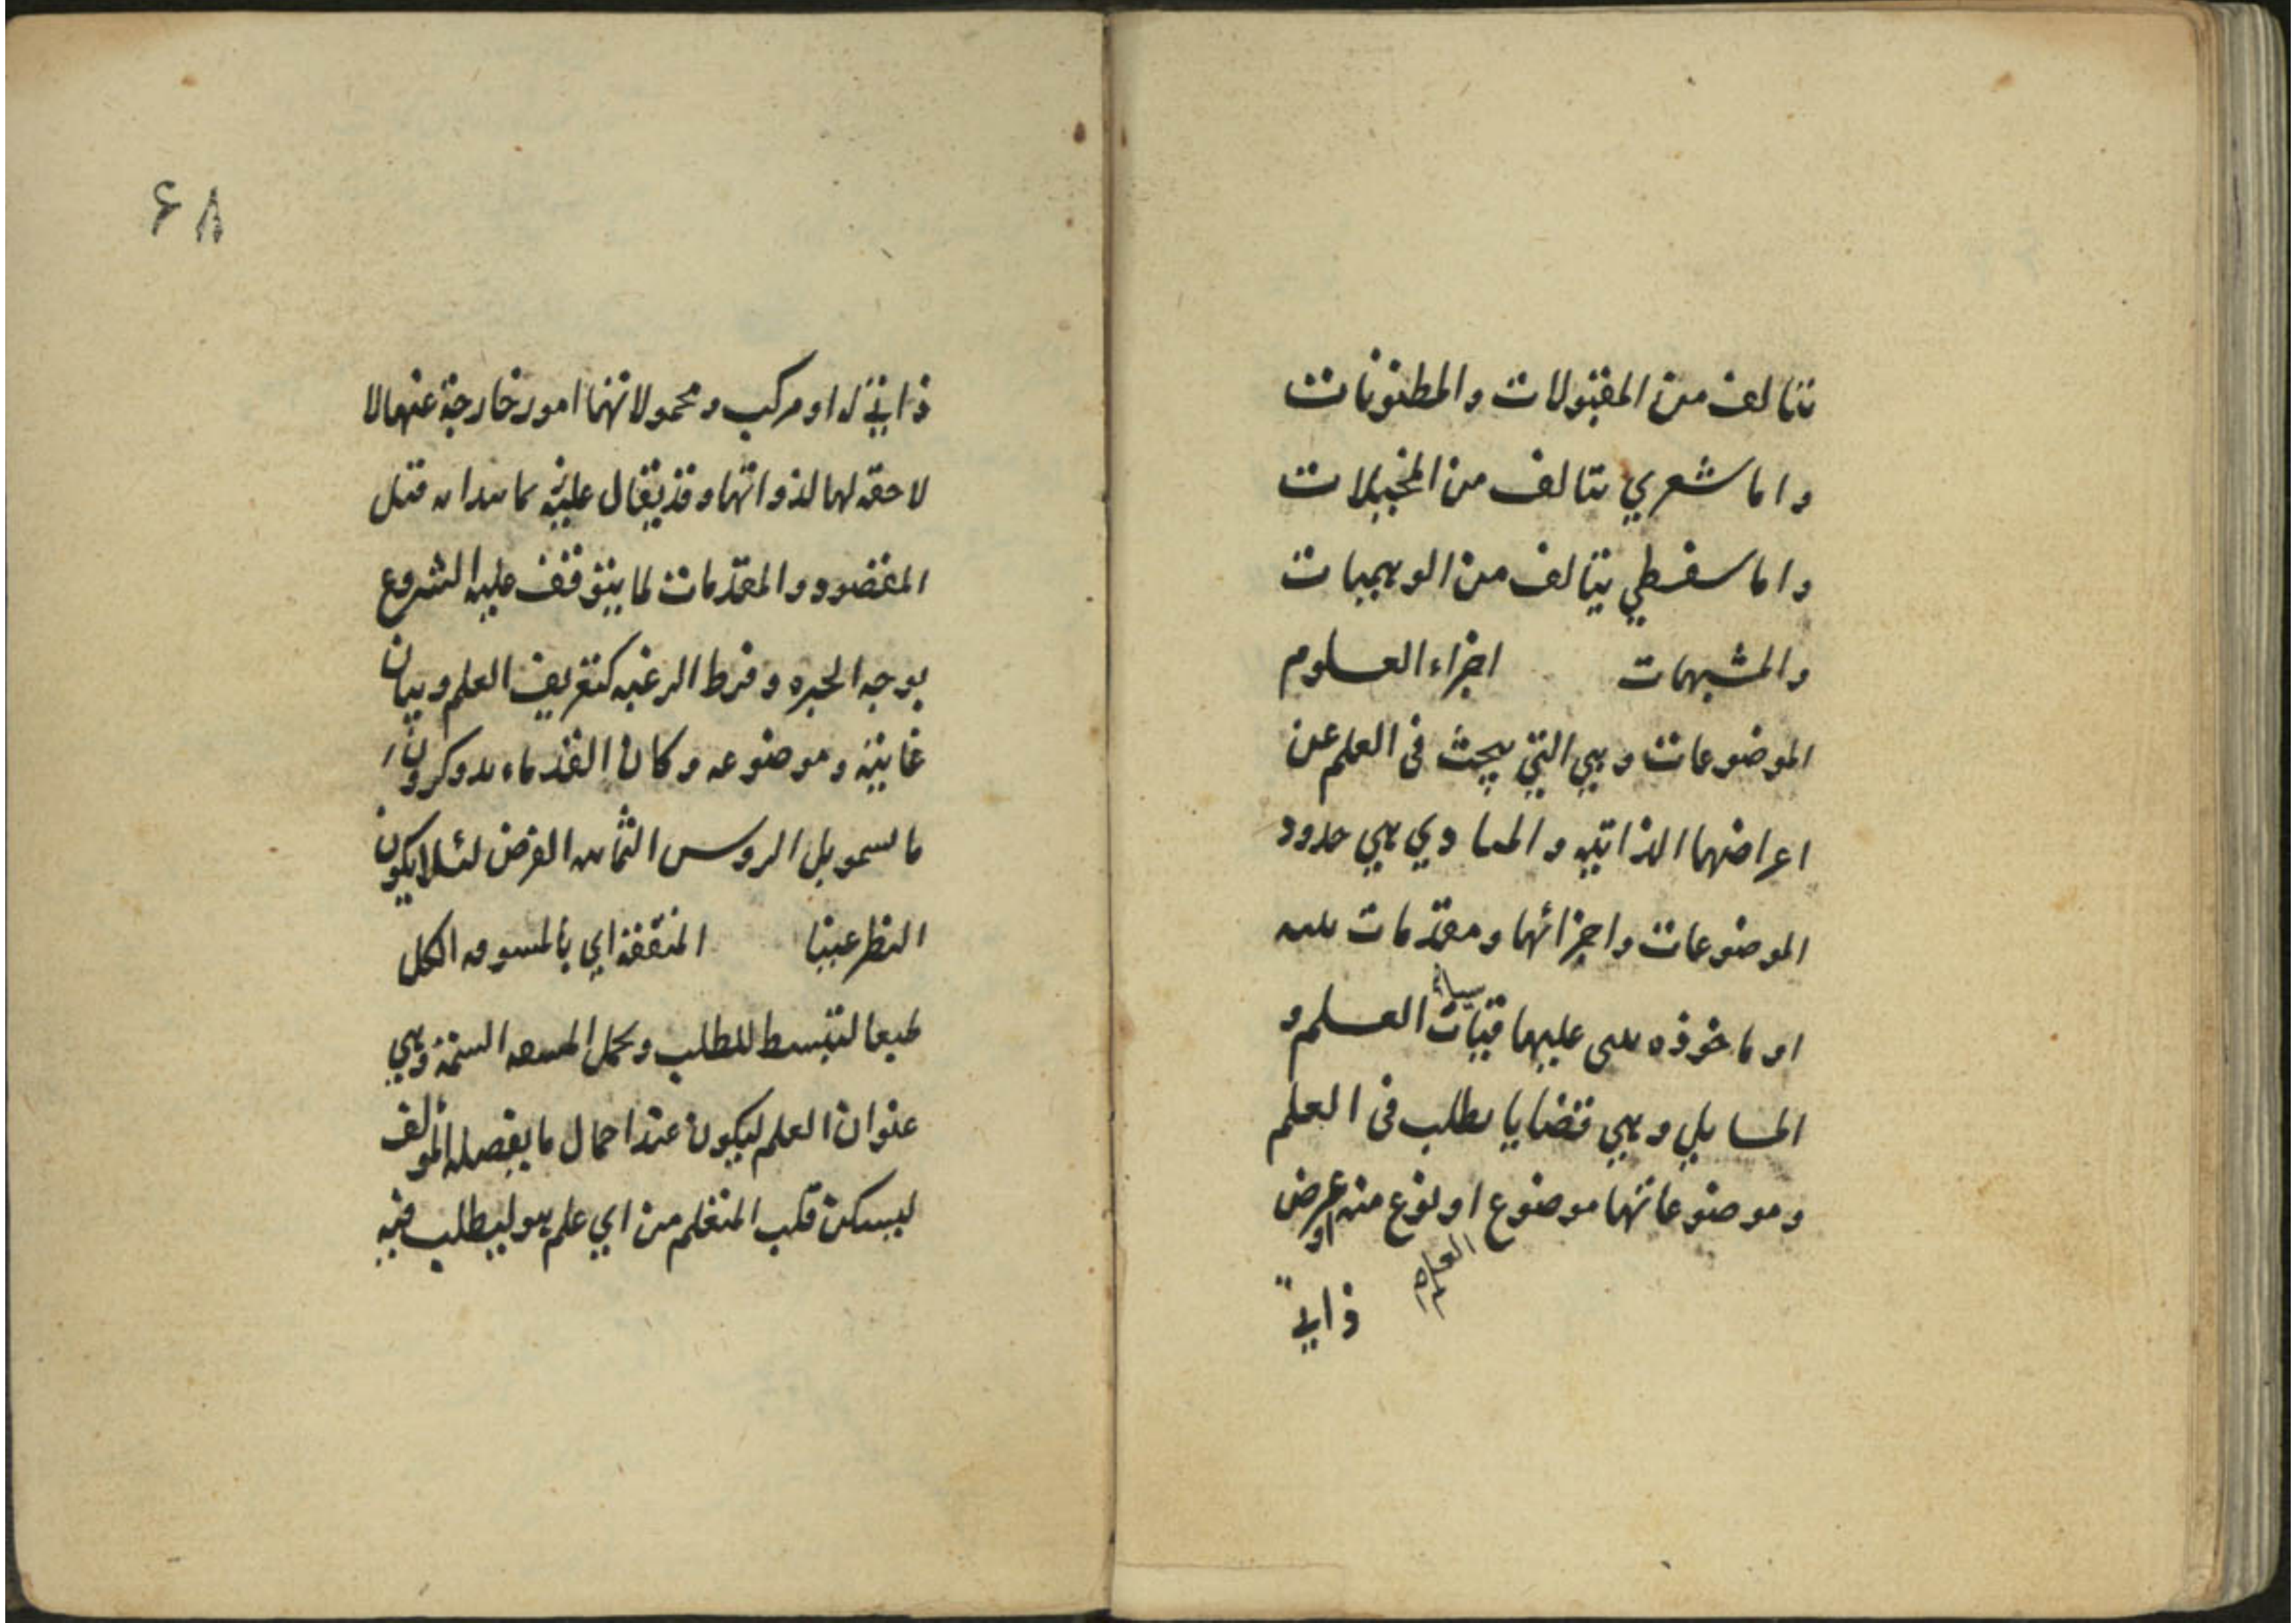 تتالف من المقبولات والمظنونات
واما شعري يتالف من المخيلات
واما سفسطي يتالف من الوهميات
والمشبهات اجزاء العلوم
الموضوعات وهي التي يبحث فى العلم عن
اعراضها الذاتيه والمبادي هي حدود
الموضوعات واجزائها ومقدمات بينه
او ماخوذه يبتنى عليها قياسات العلم و
المسايل وهي قضايا يطلب فى العلم
وموضوعاتها موضوع العلم او نوع منه او عرض
ذاتي
۶۸
ذاتي له او مركب ومحمولاتها امور خارجة عنها لا
لاحقه لها لذواتها وقد يقال عليه ما يبدا به قبل
المقصود والمقدمات لما يتوقف عليه الشروع
بوجه الخبره وفرط الرغبه كتعريف العلم وبيان
غايته وموضوعه وكان القدماء يذكرون
ما يسمونه الروس الثمانيه الغرض لئلا يكون
النظر عبثا المنفعة اي ما يتشوقه الكل
طبعا لتبسط للطلب ويحمل المشقه السمة وهي
عنوان العلم ليكون عنده اجمال ما يفصله المولف
ليسكن قلب المتعلم من اي علم هو ليطلب فيه